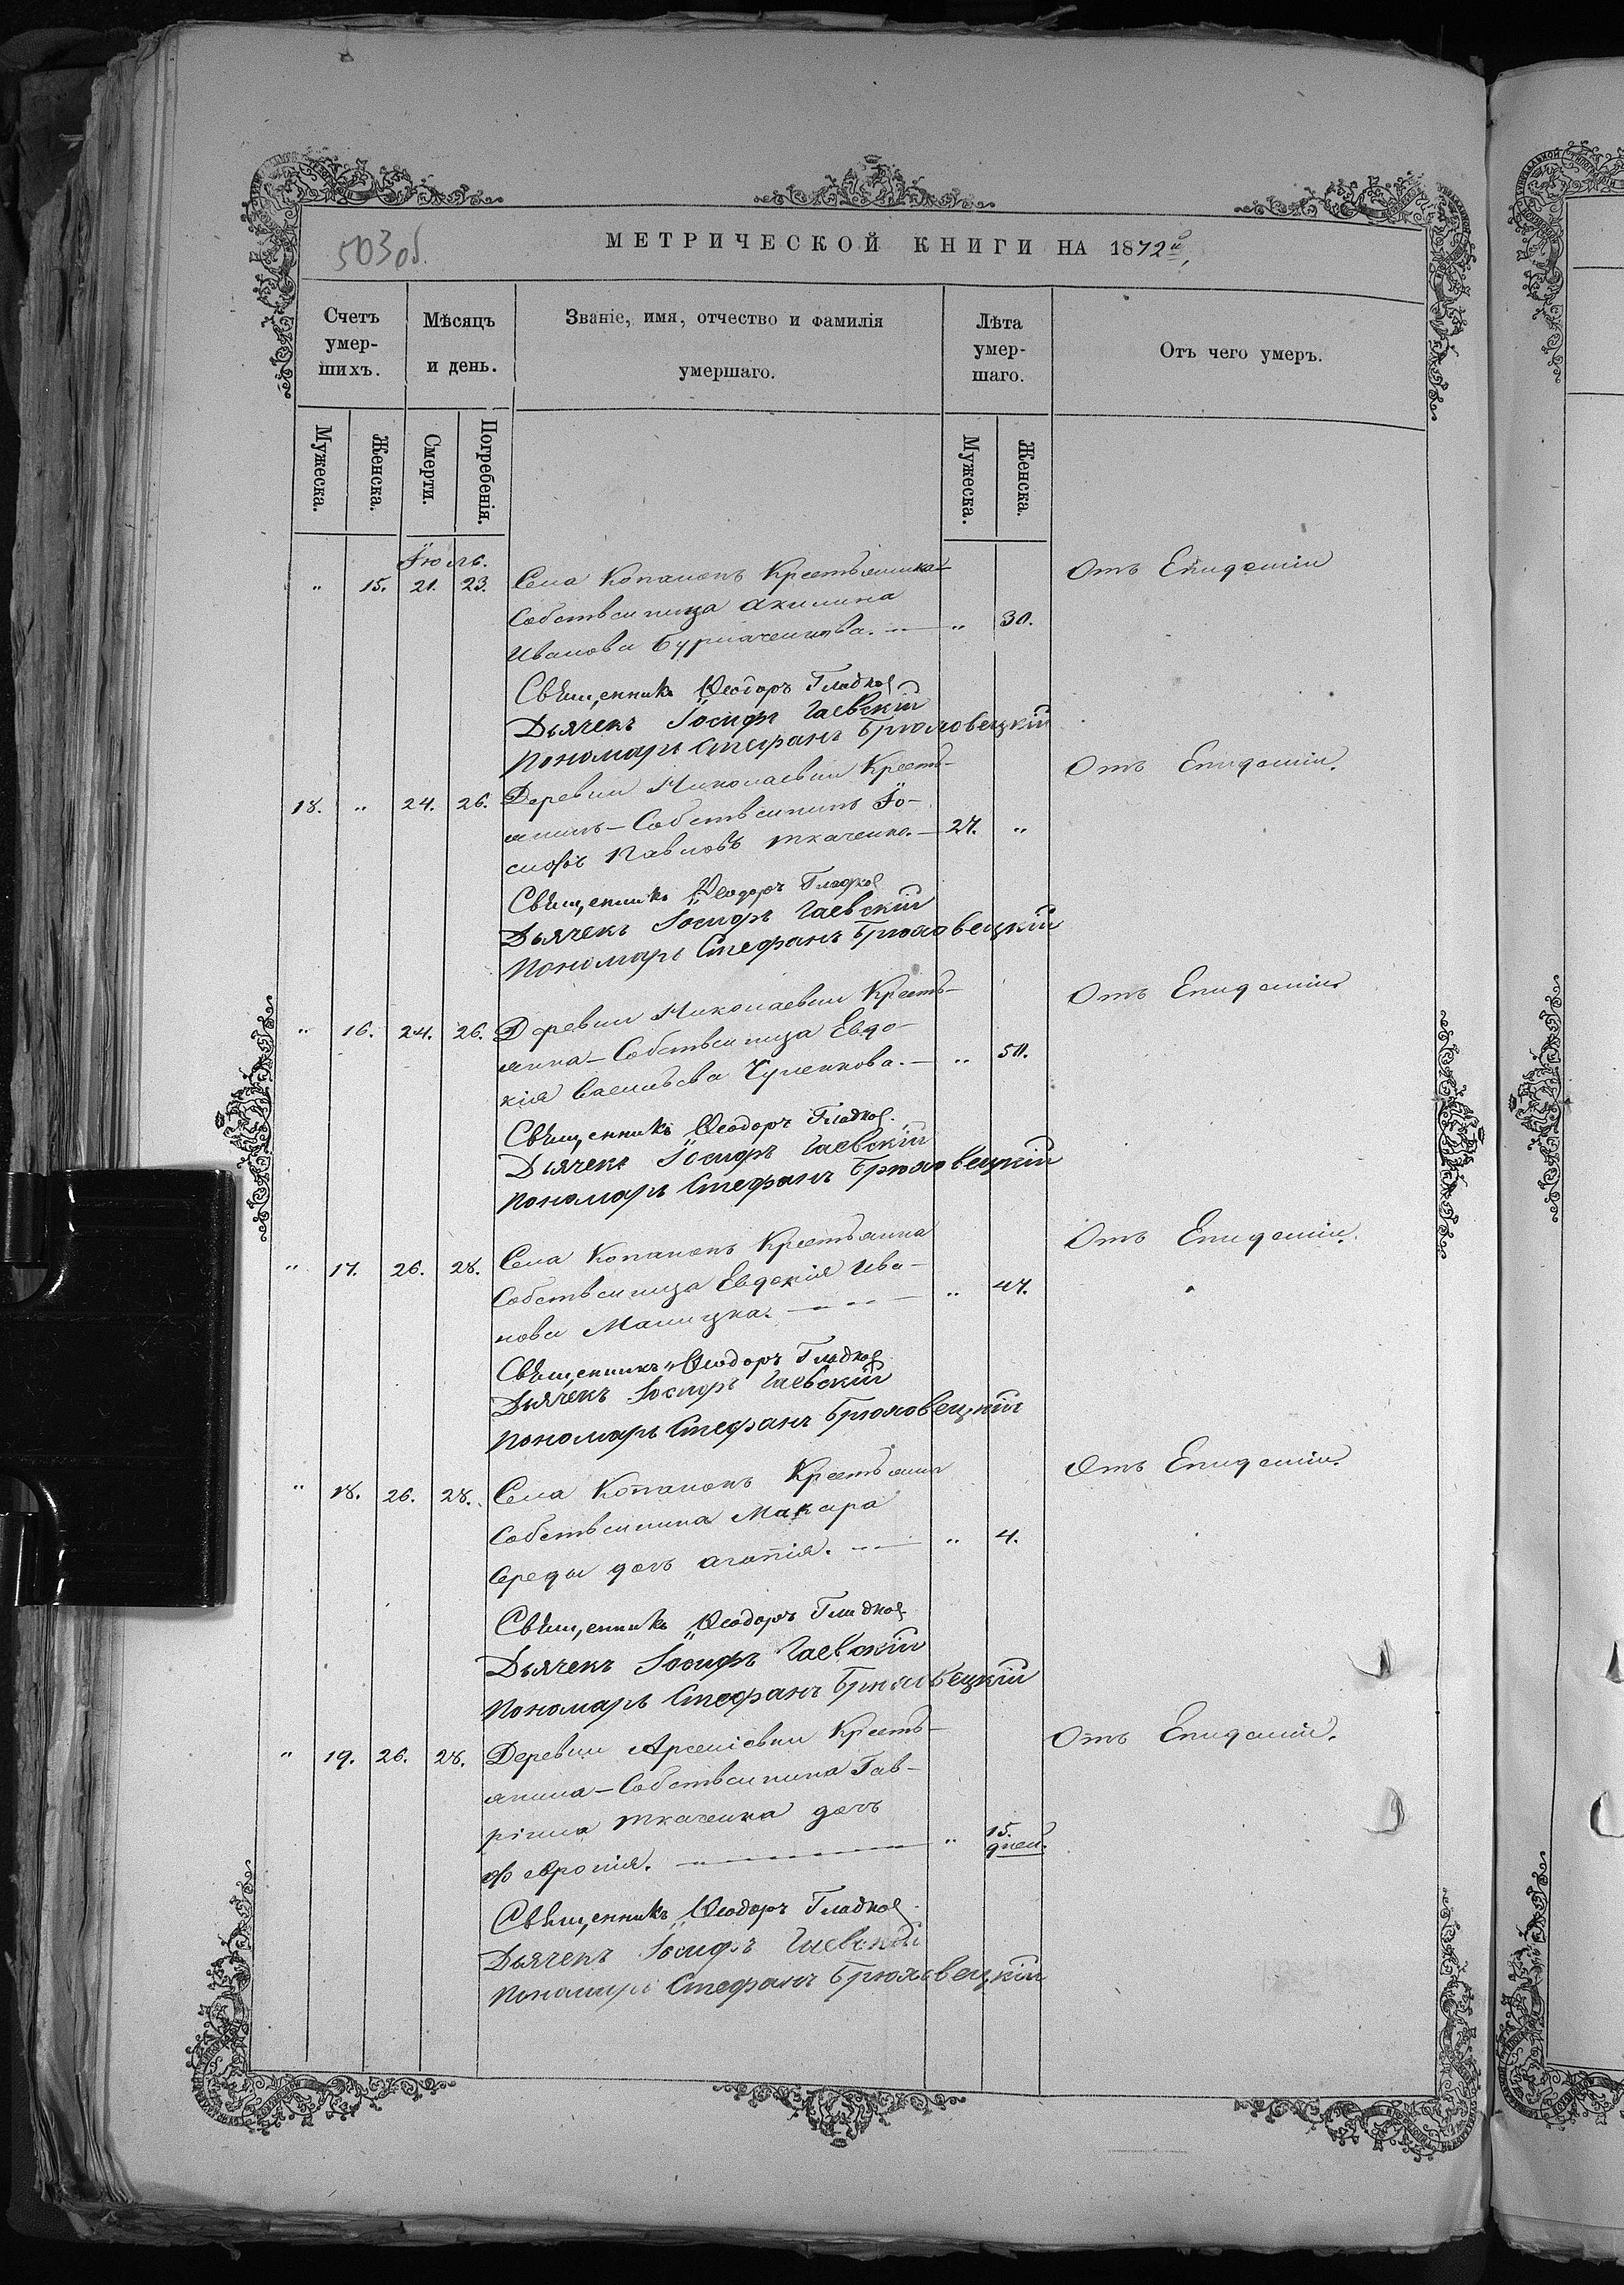 503 об.
МЕТРИЧЕСКОЙ КНИГИ НА 1872й,
Счетъ умер-шихъ.
Мѣсяцъ и день.
Званіе, имя, отчество и фамилія умершаго.
Лѣта умер-шаго.
Отъ чего умеръ.
Мужеска.
Женска.
Смерти.
Погребенія.
Мужеска.
Женска.
Іюль.
" 15. 21. 23. Села Копанокъ Крестьянка Отъ Епидеміи
Собственница Акилина
Иванова Бурлаченкова. — " 30.
Священникъ Ѳеодоръ Гладкой
Дьячекъ Іосифъ Гаевскій
Пономарь Стефанъ Брюховецкій
18. " 24. 26. Деревни Николаевки Кресть- Отъ Епидеміи.
янинъ-Собственникъ Іо-
сифъ Павловъ Ткаченко. — 27. "
Священникъ Ѳеодоръ Гладкой
Дьячекъ Іосифъ Гаевскій
Пономарь Стефанъ Брюховецкій
" 16. 24. 26. Деревни Николаевки Кресть- Отъ Епидеміи.
янка-Собственница Евдо-
кія Васильева — " 50.
Священникъ Ѳеодоръ Гладкой.
Дьячекъ Іосифъ Гаевскій
Пономарь Стефанъ Брюховецкій
" 17. 26. 28. Села Копанокъ Крестьянка Отъ Епидеміи.
Собственница Евдокія Ива-
нова — " 47.
Священникъ Ѳеодоръ Гладкой
Дьячекъ Іосифъ Гаевскій
Пономарь Стефанъ Брюховецкій
" 18. 26. 28. Села Копанокъ Крестьянина Отъ Епидеміи.
Собственника Макара
Середы дочь Агапія. — " 4.
Священникъ Ѳеодоръ Гладкой
Дьячекъ Іосифъ Гаевскій
Пономарь Стефанъ Брюховецкій
" 19. 26. 28. Деревни Арсеніевки Кресть- Отъ Епидеміи.
янина-Собственника Гав-
ріила Ткаченка дочь
Февронія. — " 15. дней.
Священникъ Ѳеодоръ Гладкой
Дьячекъ Іосифъ Гаевскій
Пономарь Стефанъ Брюховецкій